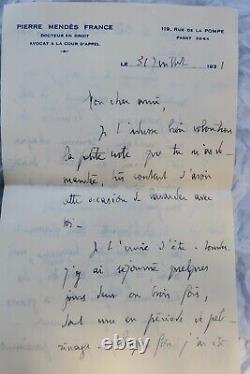 PIERRE MENDÈS FRANCE
DOCTEUR EN DROIT
AVOCAT A LA COUR D'APPEL
119, RUE DE LA POMPE
PASSY
LE 31 Juillet 1931
Mon cher ami,
Je t'adresse bien volontiers
la petite note que tu m'as de-
mandée, très content d'avoir
cette occasion de bavarder avec
toi.
Je t'envie d'être à Lourdes.
J'y ai séjourné quelques
jours deux ou trois fois,
dont une en période de pèle-
rinage
j'ai été